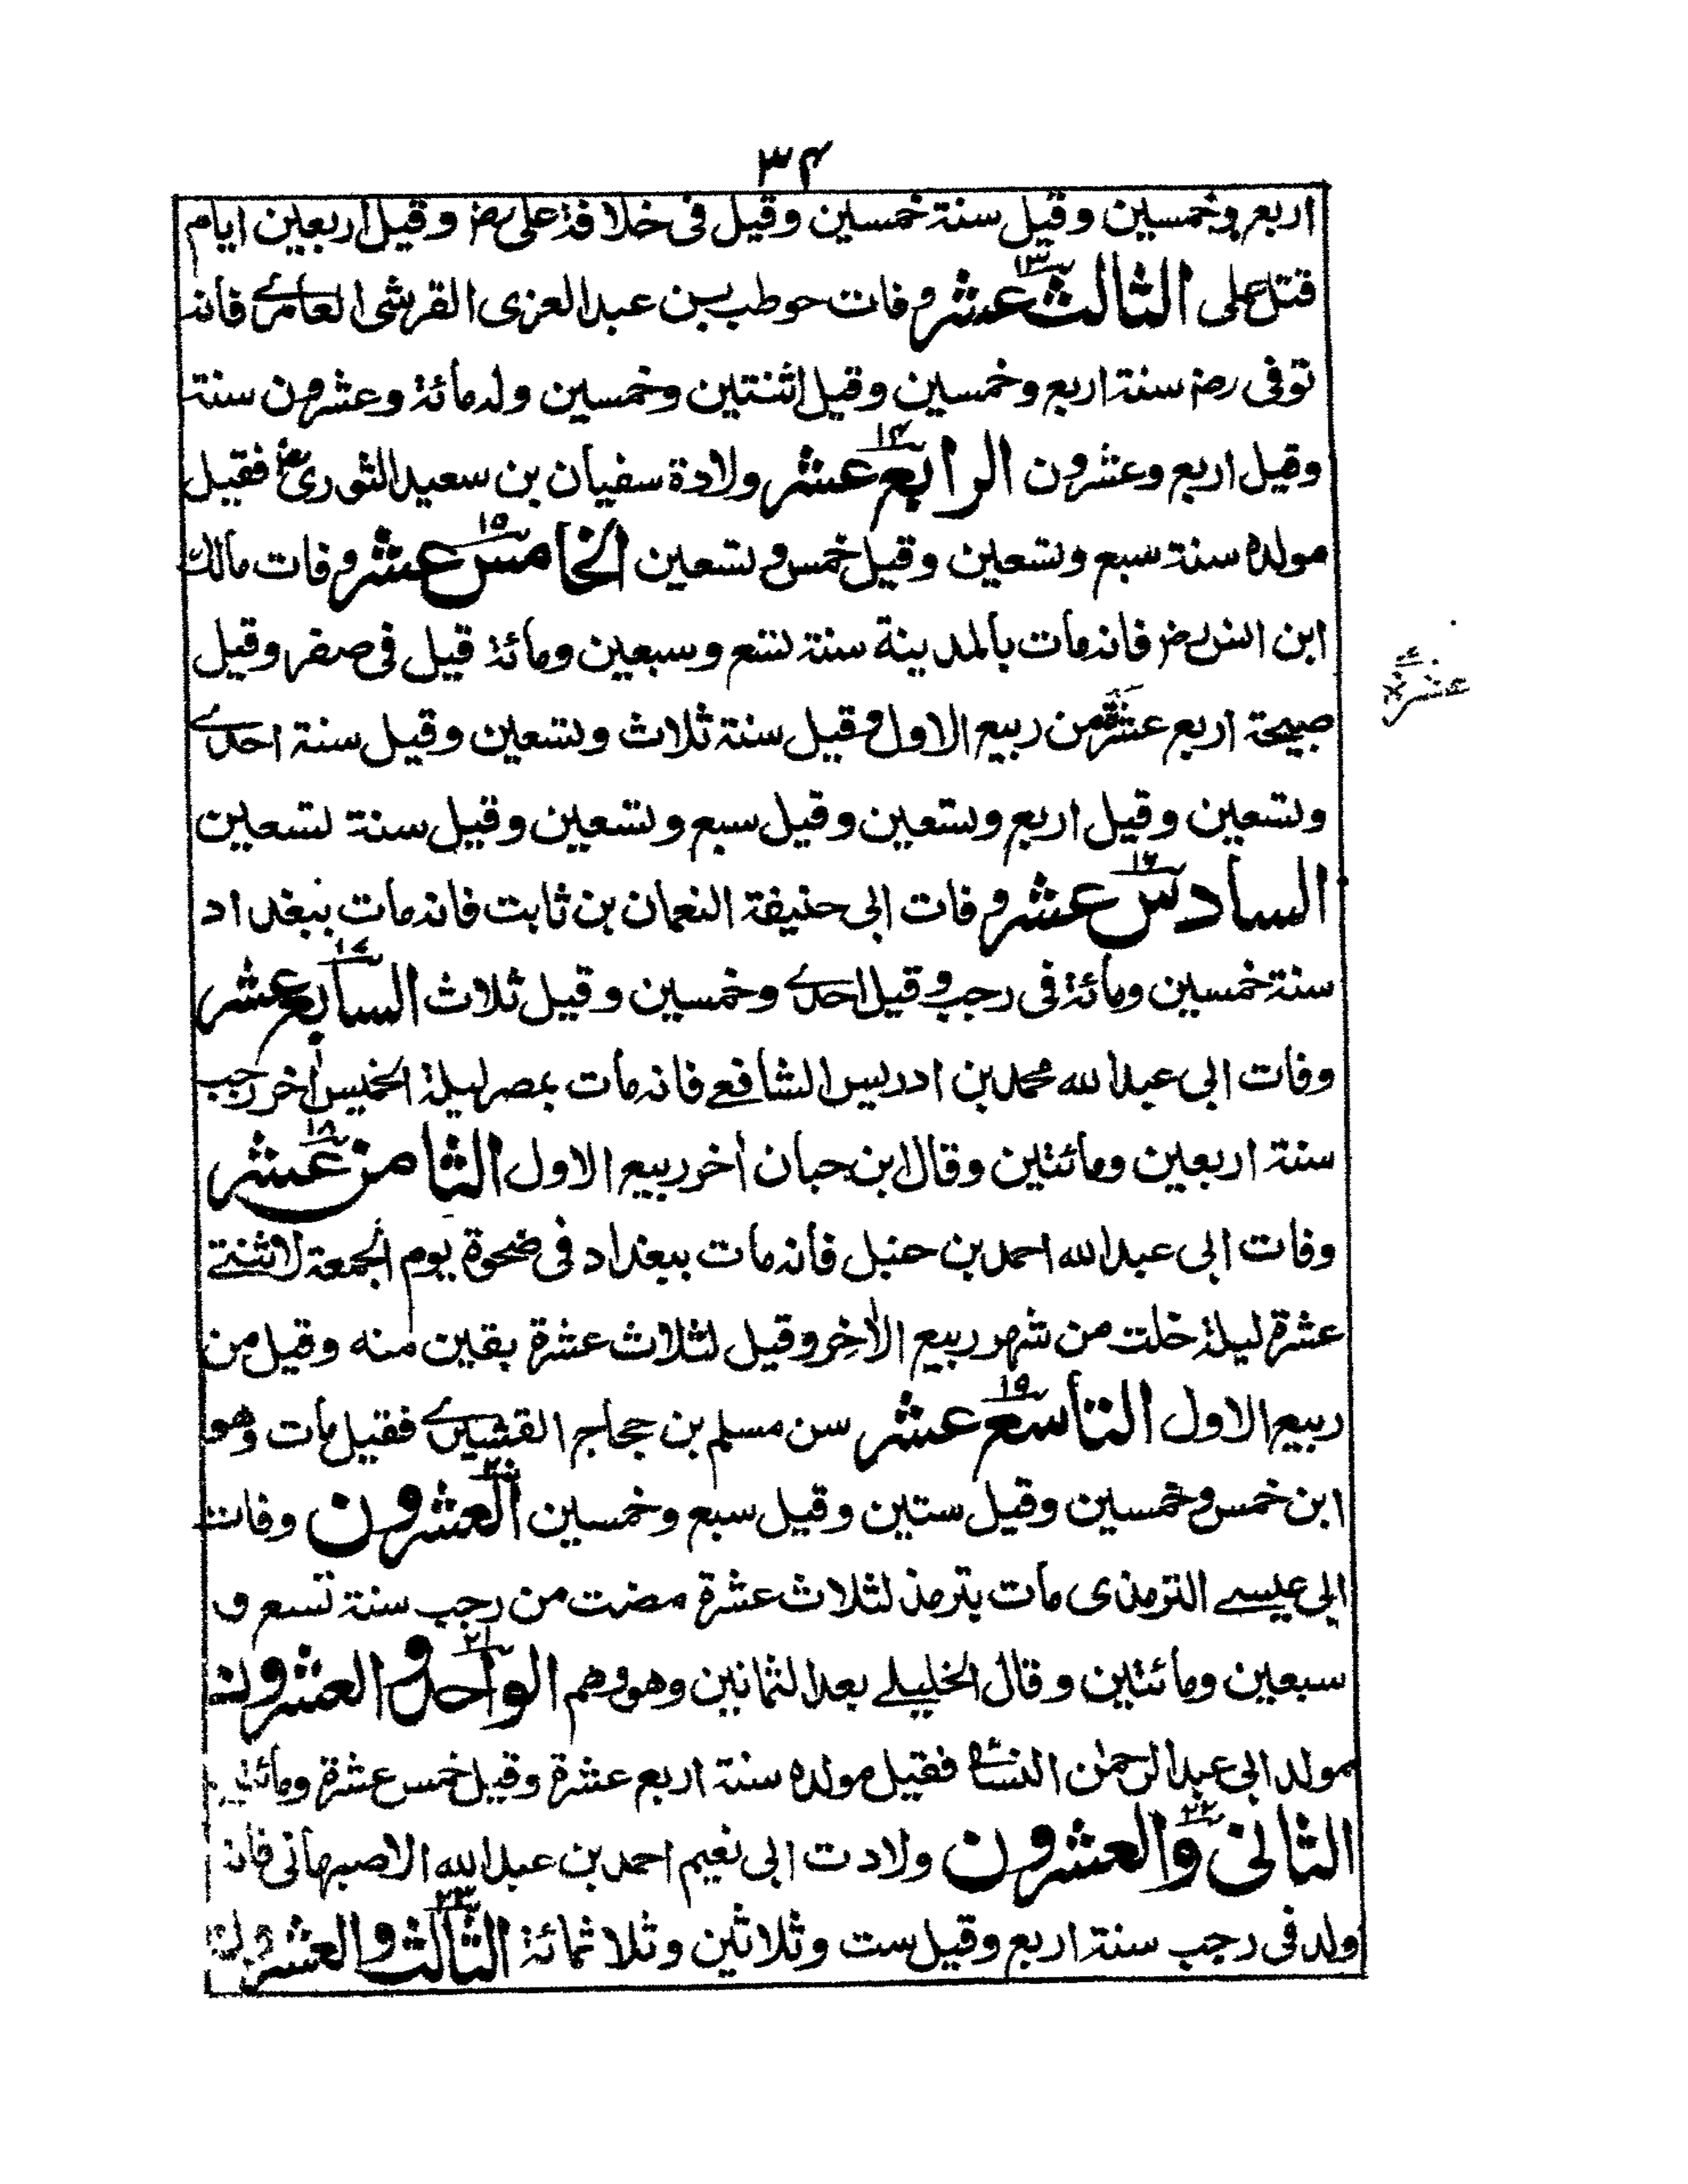 ٣٤
اربع وخمسين وقيل سنة خمسين وقيل فى خلافة على رض وقيل اربعين ايام
قتل على الثالث عشر ١٣ وفات حوطب بن عبد العزى القرشى العامرے فانه
توفى رضه سنة اربع وخمسين وقيل اثنتين وخمسين وله مائة وعشرون سنة
وقيل اربع وعشرون الرابع عشر ١٤ ولادة سفيان بن سعيد الثورى رض فقيل
مولده سنة سبع وتسعين وقيل خمس وتسعين الخامس عشر ١٥ وفات مالك
ابن انس رض فانه مات بالمدينة سنة تسع وسبعين ومائة قيل فى صفر وقيل
صبيحة اربع عشرة من ربيع الاول وقيل سنة ثلاث وتسعين وقيل سنة احدے
وتسعين وقيل اربع وتسعين وقيل سبع وتسعين وقيل سنة تسعين
السادس عشر ١٦ وفات ابى حنيفة النعمان بن ثابت فانه مات ببغداد
سنة خمسين ومائة فى رجب وقيل احدے وخمسين وقيل ثلاث السابع عشر ١٧
وفات ابى عبد الله محمد بن ادريس الشافعے فانه مات بمصر ليلة الخميس اٰخر رجب
سنة اربعين ومائتين وقال ابن حبان اٰخر ربيع الاول الثامن عشر ١٨
وفات ابى عبد الله احمد بن حنبل فانه مات ببغداد فى ضحوة يوم الجمعة لاثنتے
عشرة ليلة خلت من شهر ربيع الاٰخر وقيل لثلاث عشرة بقين منه وقيل من
ربيع الاول التاسع عشر ١٩ سن مسلم بن حجاج القشيرے فقيل مات وهو
ابن خمس وخمسين وقيل ستين وقيل سبع وخمسين العشرون ٢٠ وفات
ابى عيسے الترمذى مات بترمذ لثلاث عشرة مضت من رجب سنة تسع و
سبعين ومائتين وقال الخليلے بعد الثمانين وهو وهم الواحد والعشرون ٢١
مولد ابى عبد الرحمٰن النسائے فقيل مولده سنة اربع عشرة وقيل خمس عشرة ومائتين
الثانى والعشرون ٢٢ ولادت ابى نعيم احمد بن عبد الله الاصبهانى فانه
ولد فى رجب سنة اربع وقيل ست وثلاثين وثلاثمائة الثالث والعشرون ٢٣